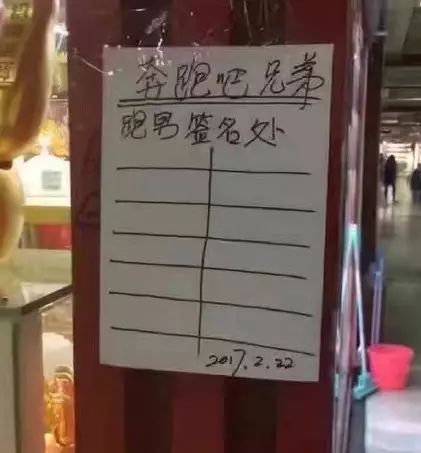 奔跑吧兄弟
跑男签名处
2017.2.22